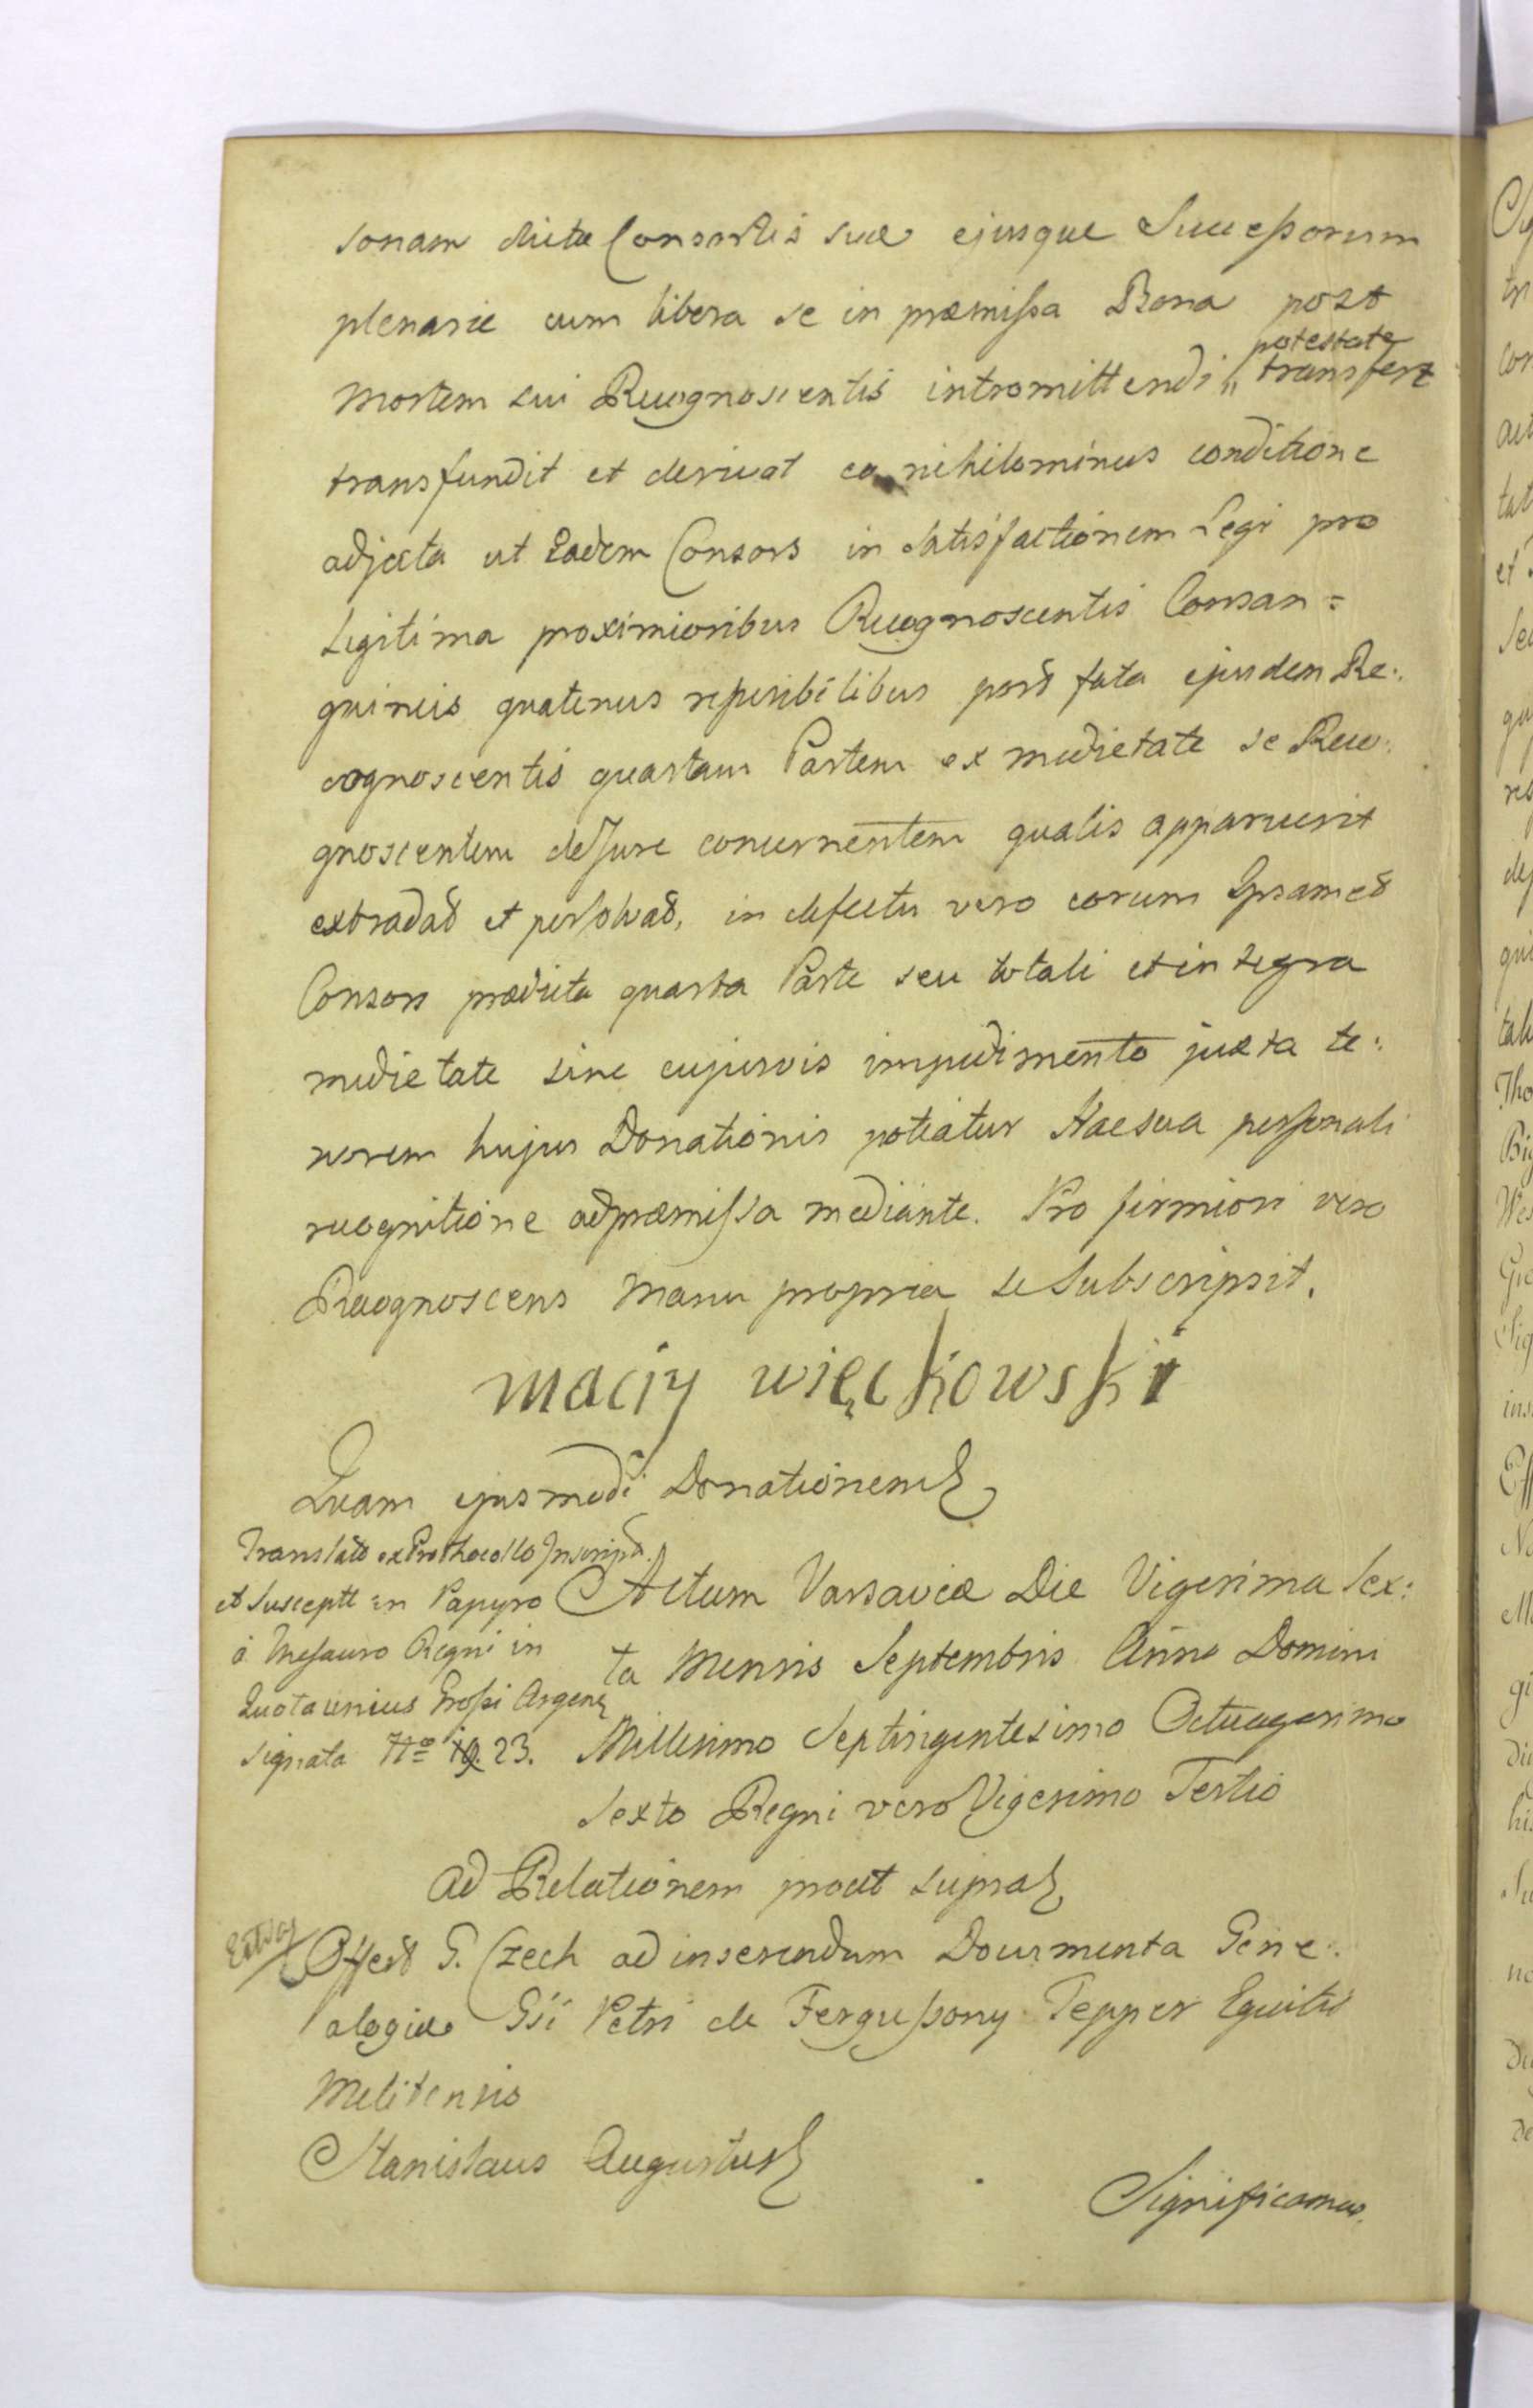 sonam dictæ Consortis suæ ejusque Successorum
plenarie cum libera se in præmissa Bona post
potestate
mortem sui Recognoscentis intromittendi „ transfert
transfundit et derivat ea nihilominus conditione
adjecta ut Eadem Consors in satisfactionem Legi pro
Legitima proximioribus Recognoscentis Consan=
guineis quatenus reperibilibus post fata ejusdem Re:
cognoscentis quartam Partem ex medietate se Reco:
gnoscentem deJure concernentem qualis apparuerit
extradat et persolvat, in defectu vero eorum Ipsamet
Consors prædicta quarta Parte seu totali et integra
medietate sine cujusvis impedimento juxta te:
norem hujus Donationis potiatur Hac sua personali
recognitione ad præmissa mediante. Pro firmiori vero
Recognoscens manu propria se Subscripsit.
maciy więckowski
Quam ejusmodi Donationem
Translato ex Prothocollo Inscript.
et Suscept in Papyro
a Thesauro Regni in
Quota unius Grossi Argen
signata No 23.
Actum Varsaviæ Die Vigesima Sex:
ta Mensis Septembris Anno Domini
Millesimo Septingentesimo Octuagesimo
Sexto Regni vero Vigesimo Tertio
Ad Relationem prout supra
Offert G. Czech ad inserendum Documenta Gene:
alogiæ Gsi Petri de Fergussony Tepper Equitis
Melitensis
Stanislaus Augustus
Significamus.